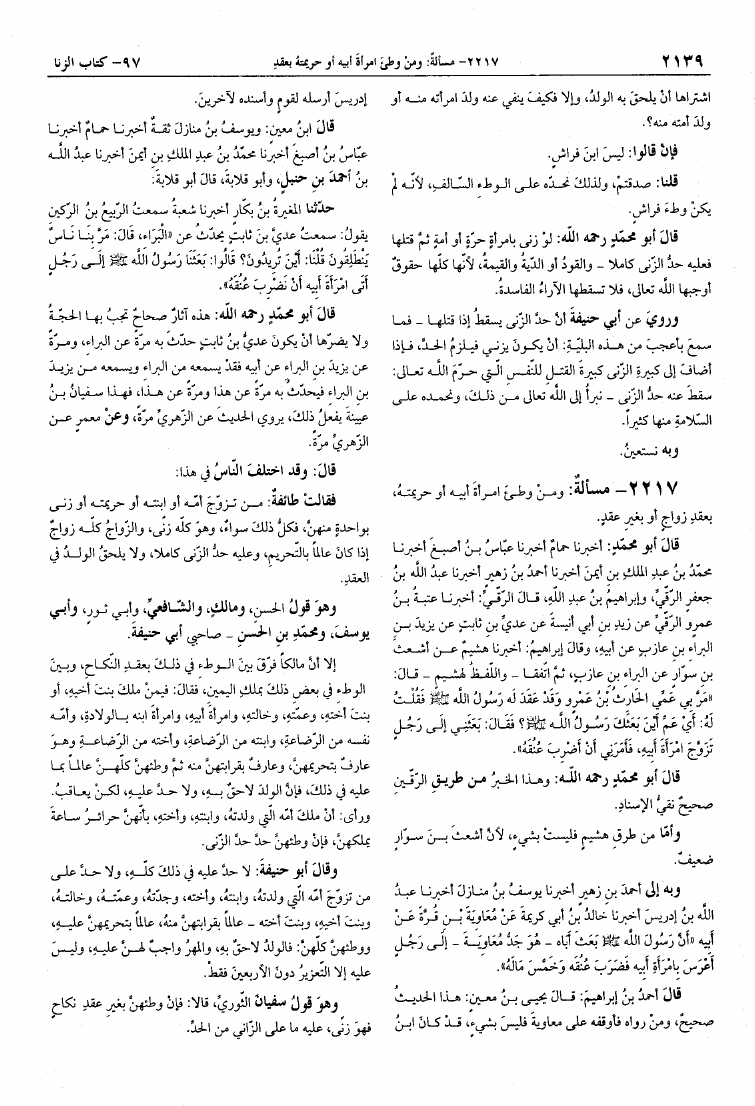 ٢١٣٩
٢٢١٧- مسألةٌ: ومنْ وطئَ امرأةَ أبيه أو حريمتهُ بعقدِ
٩٧- كتاب الزنا
اشتراها أنْ يلحقَ به الولدُ، وإلا فكيفَ ينفي عنه ولدَ امرأته منـه أو
ولدَ أمته منه؟.
فإنْ قالوا: ليسَ ابنَ فراشٍ.
قلنا: صدقتمْ، ولذلكَ نحدّه علـى الـوطءِ السّـالفِ، لأنّـه لمْ
يكنْ وطءَ فراشٍ.
قالَ أبو محمّدٍ رحمه اللّه: لوْ زنى بامرأةٍ حرّةٍ أو أمةٍ ثمَّ قتلها
فعليه حدُّ الزّنى كاملا - والقودُ أو الدّيةُ والقيمةُ، لأنّها كلّها حقوقٌ
أوجبها اللّه تعالى، فلا تسقطها الآراءُ الفاسدةُ.
ورويَ عن أبي حنيفةَ أنَّ حدَّ الزّنى يسقطُ إذا قتلهـا - فمـا
سمعَ بأعجبَ مـن هـذه البليّـةِ: أنْ يكـونَ يزنـي فيلـزمُ الحـدُّ، فـإذا
أضافَ إلى كبيرةِ الزّنى كبيرةَ القتـلِ للنّفـسِ الّـتي حـرّمَ اللّـه تعـالى:
سقطَ عنه حدُّ الزّنى - نبرأُ إلى اللّه تعالى مـن ذلـكَ، ونحمـده علـى
السّلامةِ منها كثيراً.
وبه نستعينُ.
٢٢١٧- مسألةٌ: ومـنْ وطـئَ امـرأةَ أبيـه أو حريمتـهُ،
بعقدِ زواجٍ أو بغيرِ عقدٍ.
قالَ أبو محمّدٍ: أخبرنا حمامٌ أخبرنا عبّاسُ بـنُ أصبـغَ أخبرنـا
محمّدُ بنُ عبدِ الملكِ بنِ أيمنَ أخبرنا أحمدُ بنُ زهيرٍ أخبرنا عبدُ اللّه بنُ
جعفرٍ الرّقّيُّ، وإبراهيمُ بنُ عبدِ اللّهِ، قـالَ الرّقّـيُّ: أخبرنـا عتبـةُ بـنُ
عمرٍو الرّقّيُّ عن زيدِ بنِ أبي أنيسةَ عن عديِّ بنِ ثابتٍ عن يزيدَ بـنِ
البراءِ بنِ عازبٍ عن أبيهِ، وقالَ إبراهيمُ: أخبرنا هشيمٌ عـن أشـعثَ
بنِ سوّارٍ عن البراءِ بنِ عازبٍ، ثمَّ اتّفقـا - واللّفـظُ لهشيـمٍ - قـالَ:
«مَرَّ بِي عَمِّي الحَارِثُ بْنُ عَمْرٍو وَقَدْ عَقَدَ لَه رَسُولُ اللَّه ﷺ فَقُلْتُ
لَهُ: أَيْ عَمِّ أَيْنَ بَعَثَكَ رَسُـولُ اللَّـه ﷺ؟ فَقَـالَ: بَعَثَنِـي إلَـى رَجُـلٍ
تَزَوَّجَ امْرَأَةَ أَبِيهِ، فَأَمَرَنِي أَنْ أَضْرِبَ عُنُقَهُ».
قالَ أبو محمّدٍ رحمه اللّـه: وهـذا الخبرُ مـن طريقِ الرّقّيّـينِ
صحيحٌ نقيُّ الإسنادِ.
وأمّا من طرقِ هشيمٍ فليستْ بشيءٍ، لأنَّ أشعثَ بـنَ سـوّارٍ
ضعيفٌ.
وبه إلى أحمدَ بنِ زهيرٍ أخبرنا يوسفُ بـنُ منـازلَ أخبرنـا عبـدُ
اللّه بنُ إدريسَ أخبرنا خالدُ بنُ أبي كريمةَ عَنْ مُعَاوِيَةَ بْـنِ قُـرَّةَ عَـنْ
أَبِيه «أَنَّ رَسُولَ اللَّه ﷺ بَعَثَ أَبَاه - هُـوَ جَـدُّ مُعَاوِيَـةَ - إلَـى رَجُـلٍ
أَعْرَسَ بِامْرَأَةِ أَبِيه فَضَرَبَ عُنُقَه وَخَمَّسَ مَالَهُ».
قالَ أحمدُ بنُ إبراهيمَ: قـالَ يحيـى بـنُ معـينٍ: هـذا الحديـثُ
صحيحٌ، ومنْ رواه فأوقفه على معاويةَ فليسَ بشيءٍ، قـدْ كـانَ ابـنُ
إدريسَ أرسله لقومٍ وأسنده لآخرينَ.
قالَ ابنُ معينٍ: ويوسفُ بنُ منازلَ ثقـةٌ أخبرنـا حمـامٌ أخبرنـا
عبّاسُ بنُ أصبغَ أخبرنا محمّدُ بنُ عبدِ الملكِ بنِ أيمنَ أخبرنا عبدُ اللّـه
بنُ أحمدَ بنِ حنبلٍ، وأبو قلابةَ، قالَ أبو قلابةَ:
حدّثنا المغيرةُ بنُ بكّارٍ أخبرنا شعبةُ سمعتُ الرّبيعَ بنَ الرّكينِ
يقولُ: سمعتُ عديَّ بنَ ثابتٍ يحدّثُ عن «الْبَرَاءِ، قَالَ: مَرَّ بِنَا نَـاسٌ
يَنْطَلِقُونَ قُلْنَا: أَيْنَ تُرِيدُونَ؟ قَالُوا: بَعَثَنَا رَسُولُ اللَّه ﷺ إلَـى رَجُـلٍ
أَتَى امْرَأَةَ أَبِيه أَنْ نَضْرِبَ عُنُقَهُ».
قالَ أبو محمّدٍ رحمه اللّه: هذه آثارٌ صحاحٌ تجبُ بهـا الحجّـةُ
ولا يضرّها أنْ يكونَ عديُّ بنُ ثابتٍ حدّثَ به مرّةً عن البراءِ، ومـرّةً
عن يزيدَ بنِ البراءِ عن أبيه فقدْ يسمعه من البراءِ ويسمعه مـن يزيـدَ
بنِ البراءِ فيحدّثُ به مرّةً عن هذا ومرّةً عن هـذا، فهـذا سـفيانُ بـنُ
عيينةَ يفعلُ ذلكَ، يروي الحديثَ عن الزّهريِّ مرّةً، وعنْ معمرٍ عـن
الزّهريِّ مرّةً.
قالَ: وقد اختلفَ النّاسُ في هذا:
فقالتْ طائفةٌ: مـن تـزوّجَ أمّـه أو ابنتـه أو حريمتـه أو زنـى
بواحدةٍ منهنَّ، فكلُّ ذلكَ سواءٌ، وهوَ كلّه زنًى، والزّواجُ كلّـه زواجٌ
إذا كانَ عالماً بالتّحريمِ، وعليه حدُّ الزّنى كاملا، ولا يلحقُ الولـدُ في
العقدِ.
وهوَ قولُ الحسنِ، ومالكٍ، والشّافعيِّ، وأبـي ثـورٍ، وأبـي
يوسفَ، ومحمّدِ بنِ الحسنِ - صاحبي أبي حنيفةَ.
إلا أنَّ مالكاً فرّقَ بينَ الـوطءِ في ذلـكَ بعقـدِ النّكـاحِ، وبـينَ
الوطءِ في بعضِ ذلكَ بملكِ اليمينِ، فقالَ: فيمنْ ملكَ بنتَ أخيهِ، أو
بنتَ أختهِ، وعمّتهِ، وخالتهِ، وامرأةَ أبيهِ، وامرأةَ ابنه بـالولادةِ، وأمّـه
نفسه من الرّضاعةِ، وابنته من الرّضاعةِ، وأخته من الرّضاعـةِ وهـوَ
عارفٌ بتحريمهنَّ، وعارفٌ بقرابتهنَّ منه ثمَّ وطئهنَّ كلّهـنَّ عالمـاً بمـا
عليه في ذلكَ، فإنَّ الولدَ لاحقٌ بـهِ، ولا حـدَّ عليـهِ، لكـنْ يعاقـبُ.
ورأى: أنَّ ملكَ أمّه الّتي ولدتهُ، وابنتهِ، وأختهِ، بأنّهنَّ حرائـرُ سـاعةَ
يملكهنَّ، فإنْ وطئهنَّ حدَّ حدَّ الزّنى.
وقالَ أبو حنيفةَ: لا حدَّ عليه في ذلكَ كلّـهِ، ولا حـدَّ علـى
من تزوّجَ أمّه الّتي ولدتهُ، وابنتهُ، وأختهِ، وجدّتهُ، وعمّتـهُ، وخالتـهُ،
وبنتَ أخيهِ، وبنتَ أختهِ - عالماً بقرابتهنَّ منهُ، عالماً بتحريمهنَّ عليـهِ،
ووطئهنَّ كلّهنَّ: فالولدُ لاحقٌ بهِ، والمهرُ واجبٌ لهـنَّ عليـهِ، وليـسَ
عليه إلا التّعزيرُ دونَ الأربعينَ فقطْ.
وهوَ قولُ سفيانَ الثّوريِّ، قالا: فإنْ وطئهنَّ بغيرِ عقدِ نكاحٍ
فهوَ زنًى، عليه ما على الزّاني من الحدِّ.